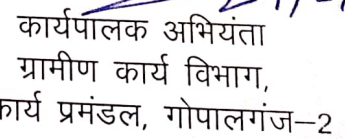 कार्यपालक अभियंता
ग्रामीण कार्य विभाग,
कार्य प्रमंडल, गोपालगंज–2